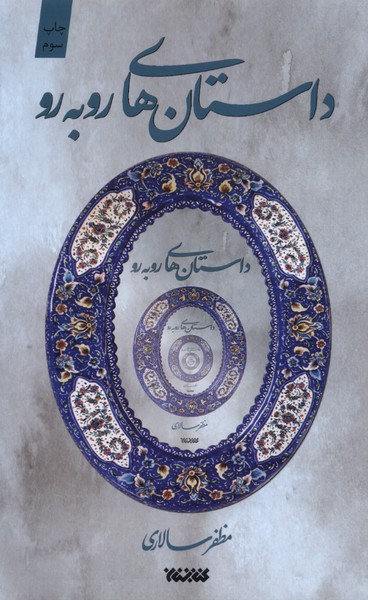 چاپ
سوم
داستان‌های روبه‌رو
داستان‌های روبه‌رو
داستان‌های روبه‌رو
مظفر سالاری
مظفر سالاری
کتابستان